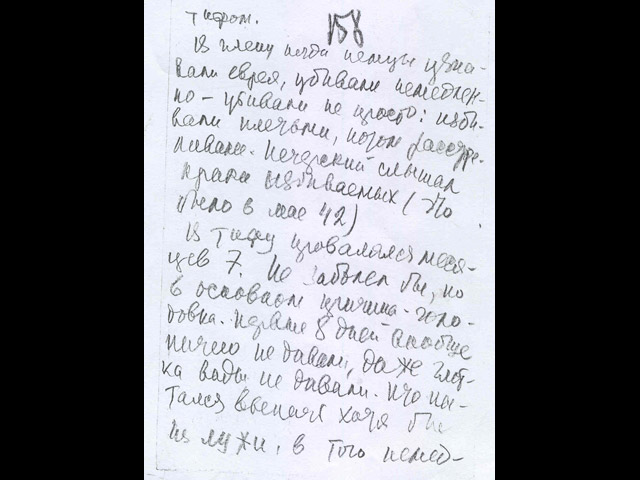 тифом.
158
В плену когда немцы узна-
вали еврея, убивали немедлен-
но - убивали не просто: изби-
вали плетьми, потом расстре-
ливали. Печерский слышал
крики избиваемых (Это
было в мае 42)
В тифу провалялся меся-
цев 7. Не заболел бы, но
в основном причина - голо-
довка. Первые 8 дней вообще
ничего не давали, даже глот-
ка воды не давали. Кто пы-
тался выпить хотя бы
из лужи, в того немед-